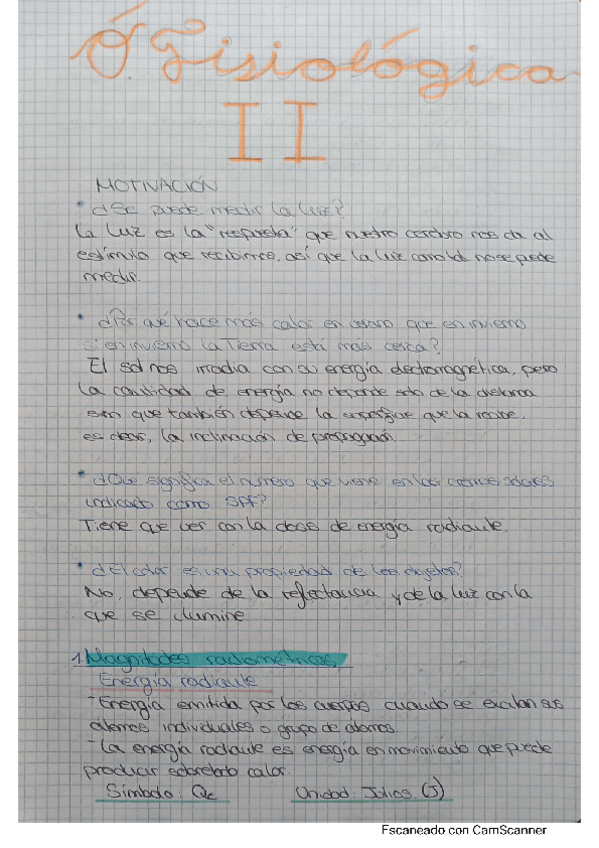 Ó. Fisiológica
II
MOTIVACIÓN
• ¿Se puede medir la luz?
La luz es la "respuesta" que nuestro cerebro nos da al
estímulo que recibimos, así que la luz como tal no se puede
medir.
• ¿Por qué hace más calor en verano que en invierno
si en invierno la Tierra está más cerca?
El sol nos irradia con su energía electromagnética, pero
la cantidad de energía no depende solo de la distancia
sino que también depende la superficie que la recibe,
es decir, la inclinación de propagación.
• ¿Qué significa el número que viene en las cremas solares
indicado como SPF?
Tiene que ver con la dosis de energía radiante.
• ¿El color es una propiedad de los objetos?
No, depende de la reflectancia y de la luz con la
que se ilumine
1. Magnitudes radiométricas
Energía radiante
- Energía emitida por los cuerpos cuando se excitan sus
átomos individuales o grupo de átomos.
- La energía radiante es energía en movimiento que puede
producir sobretodo calor.
Símbolo: Qe Unidad: Julios (J)
Escaneado con CamScanner